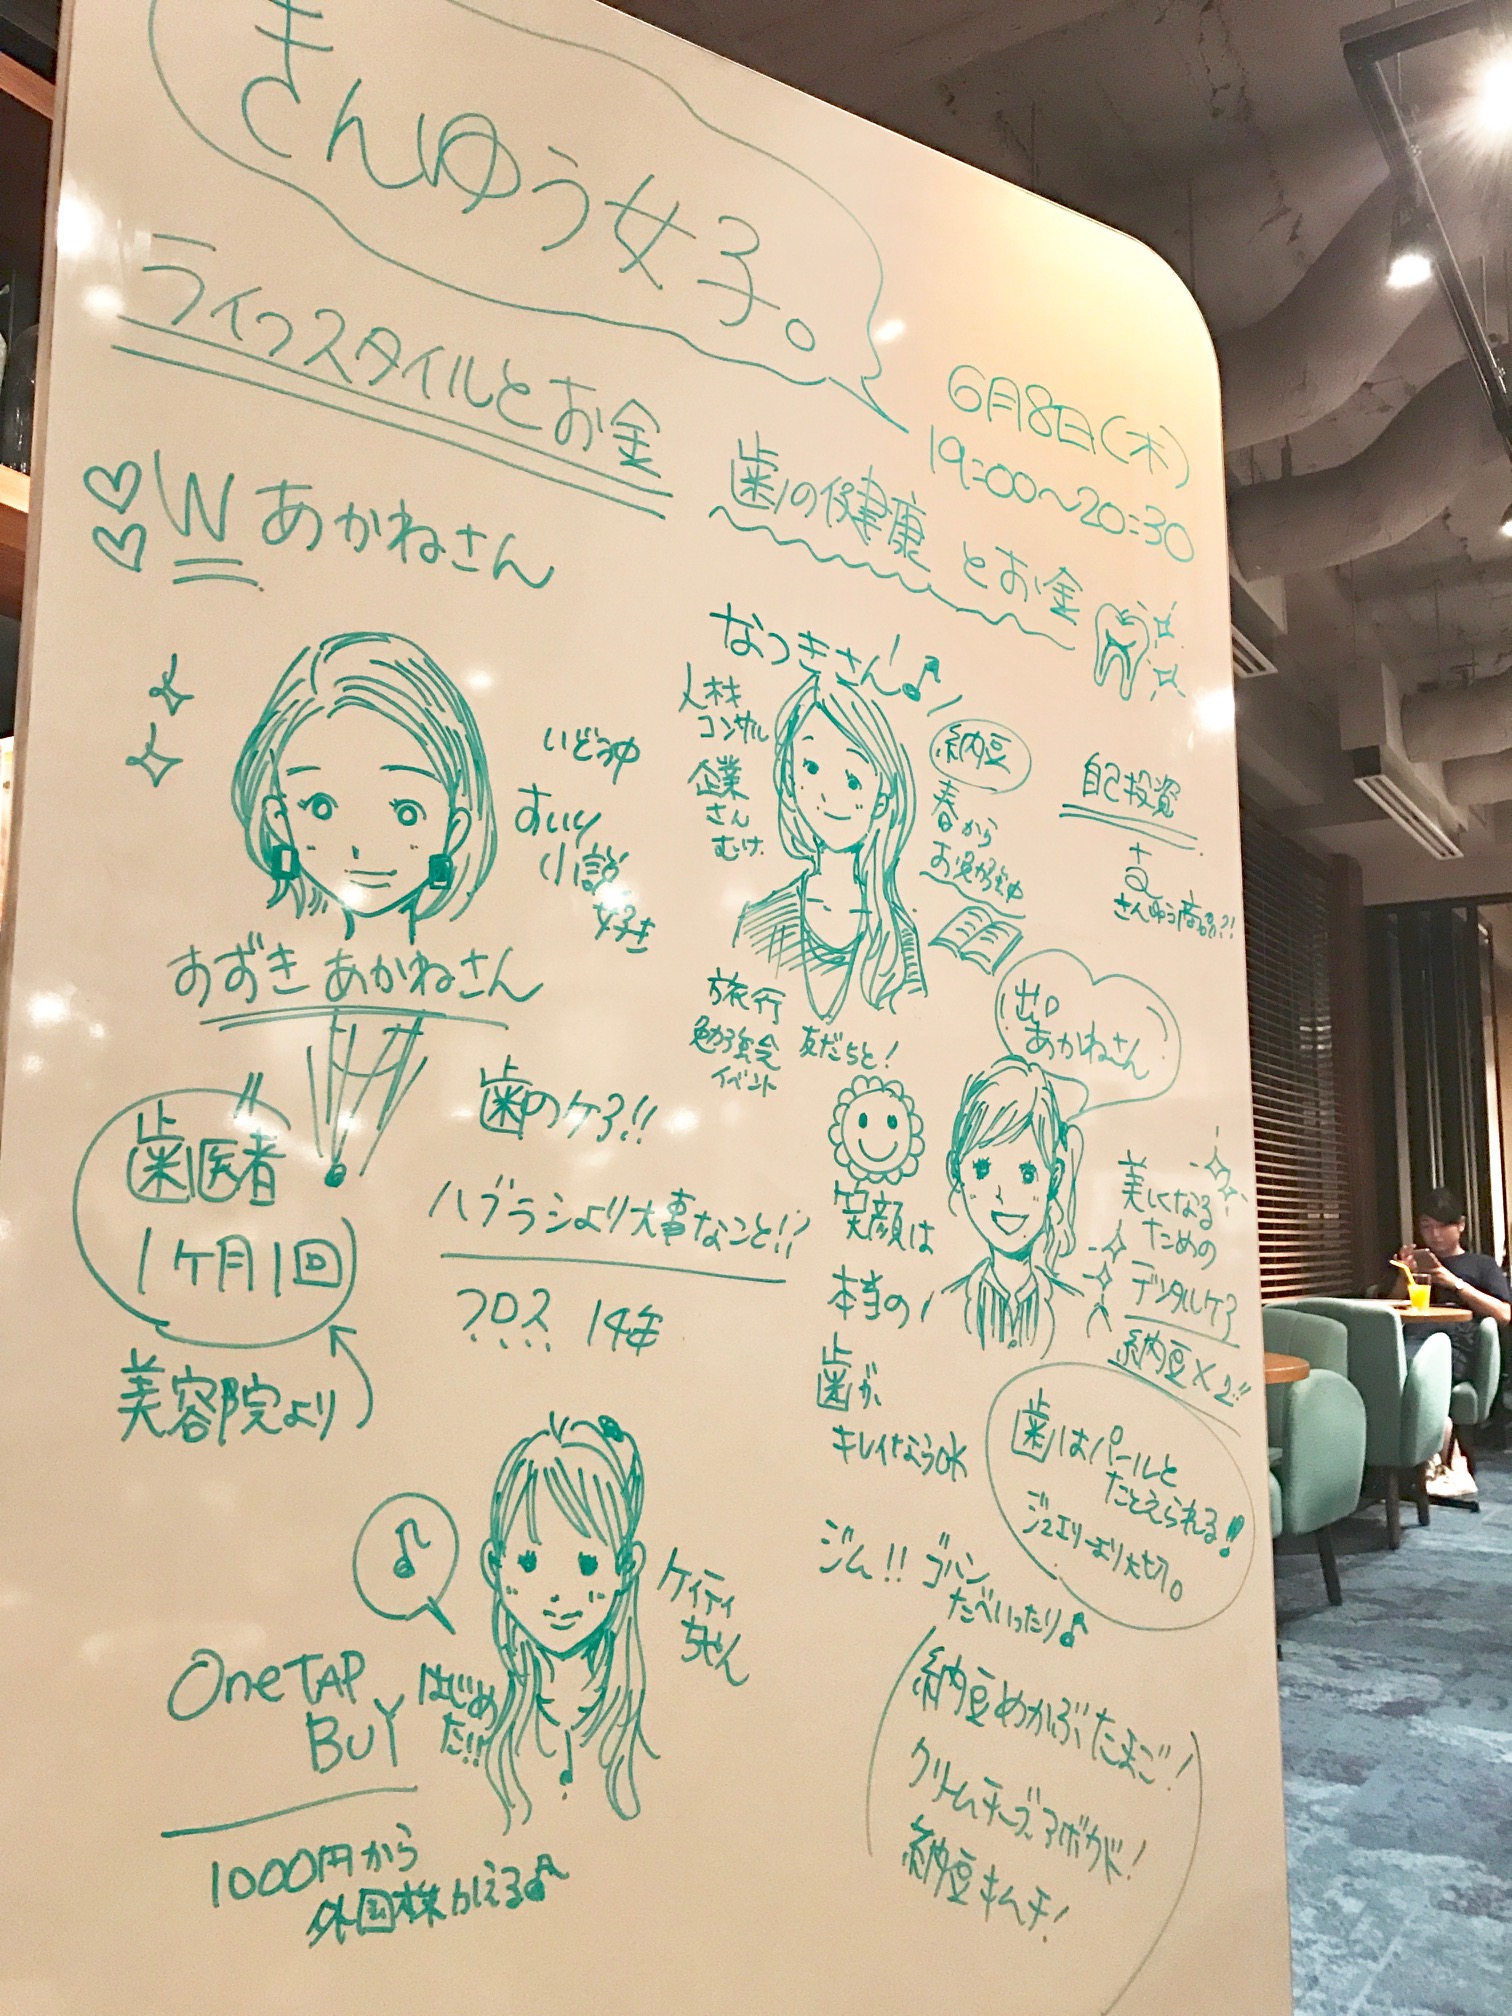 きんゆう女子。
ライフスタイルとお金
6月8日(木)
19:00〜20:30
W あかねさん
歯の健康とお金
なつきさん
人材
コンサル
企業
さん
むけ
納豆
春から
自己投資
いどう中
すいり
小説
好き
すずき あかねさん
旅行
勉強会
イベント
友だちと!
あかねさん
歯医者
1ヶ月1回
美容院より
歯のケア!!
ハブラシより大事なこと!?
フロス 1年
笑顔は
本当の
歯が
キレイなら
美しくなる
ための
デンタルケア
納豆×2!!
歯はパールと
たとえられる!!
ジュエリーより大切。
ジム!! ゴハン
たべいったり♪
♪
ケイティ
ちゃん
One TAP
BUY
はじめ
た!!
1000円から
外国株かえる♪
納豆めかぶたまご!
クリームチーズアボカド!
納豆キムチ!